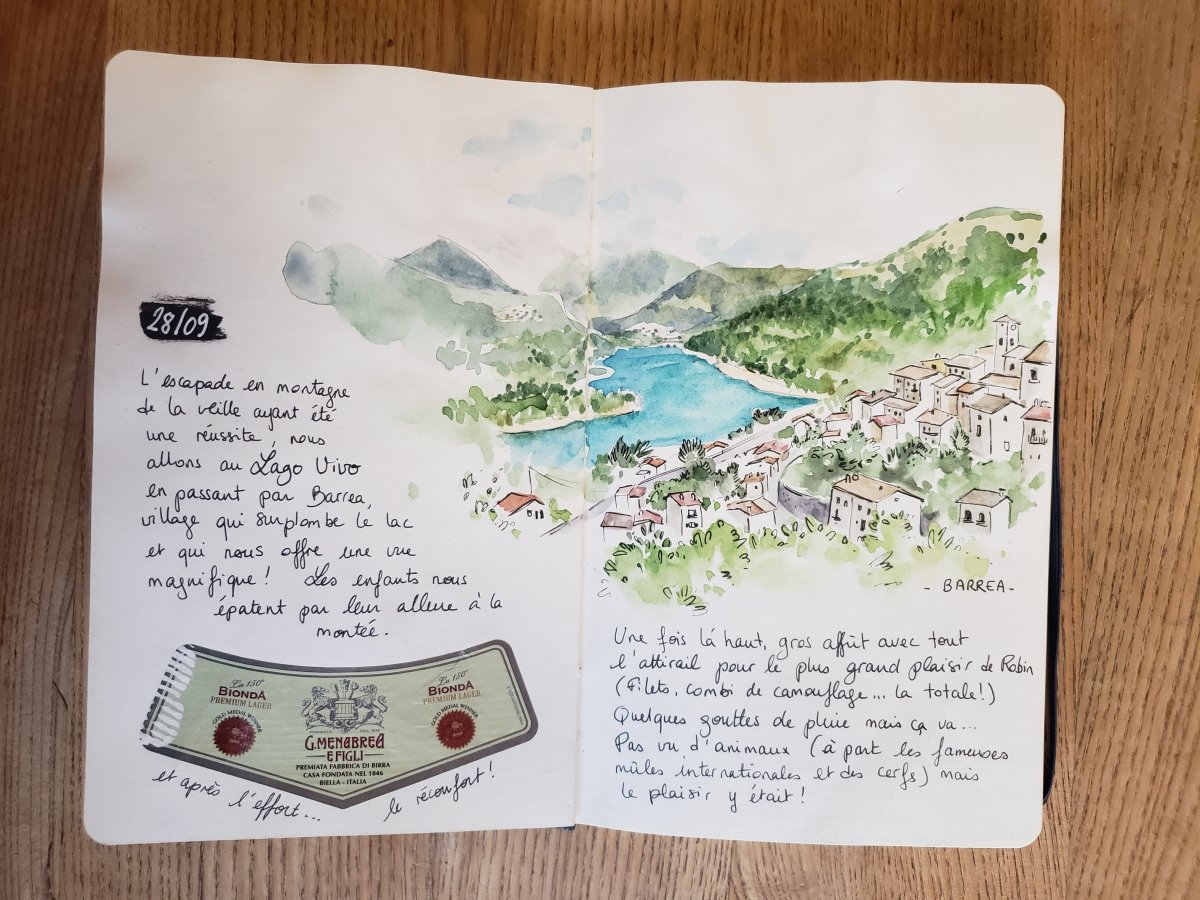 28/09
L'escapade en montagne
de la veille ayant été
une réussite, nous
allons au Lago Vivo
en passant par Barrea,
village qui surplombe le lac
et qui nous offre une vue
magnifique ! Les enfants nous
épatent par leur allure à la
montée.
La 150°
BIONDA
PREMIUM LAGER
GOLD MEDAL WINNER
FONDATA NEL 1846
G. MENABREA
E FIGLI
PREMIATA FABBRICA DI BIRRA
CASA FONDATA NEL 1846
BIELLA - ITALIA
La 150°
BIONDA
PREMIUM LAGER
GOLD MEDAL WINNER
et après l'effort...
le réconfort !
- BARREA -
Une fois là haut, gros affût avec tout
l'attirail pour le plus grand plaisir de Robin
(Filets, combi de camouflage... la totale !)
Quelques gouttes de pluie mais ça va...
Pas vu d'animaux (à part les fameuses
mûles internationales et des cerfs) mais
le plaisir y était !